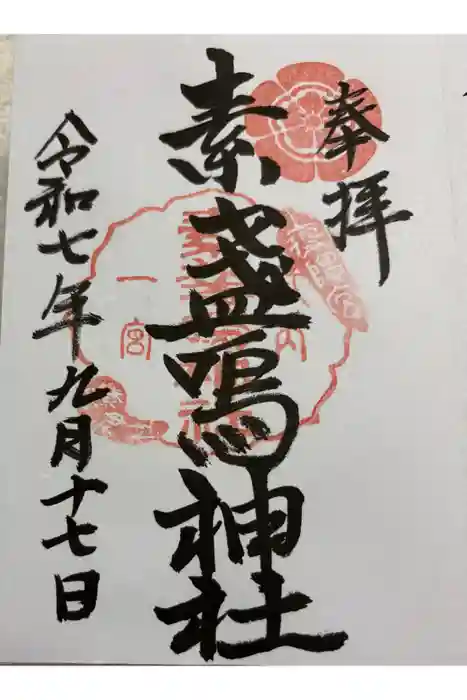 奉拝
素盞嗚神社
一宮
令和七年九月十七日